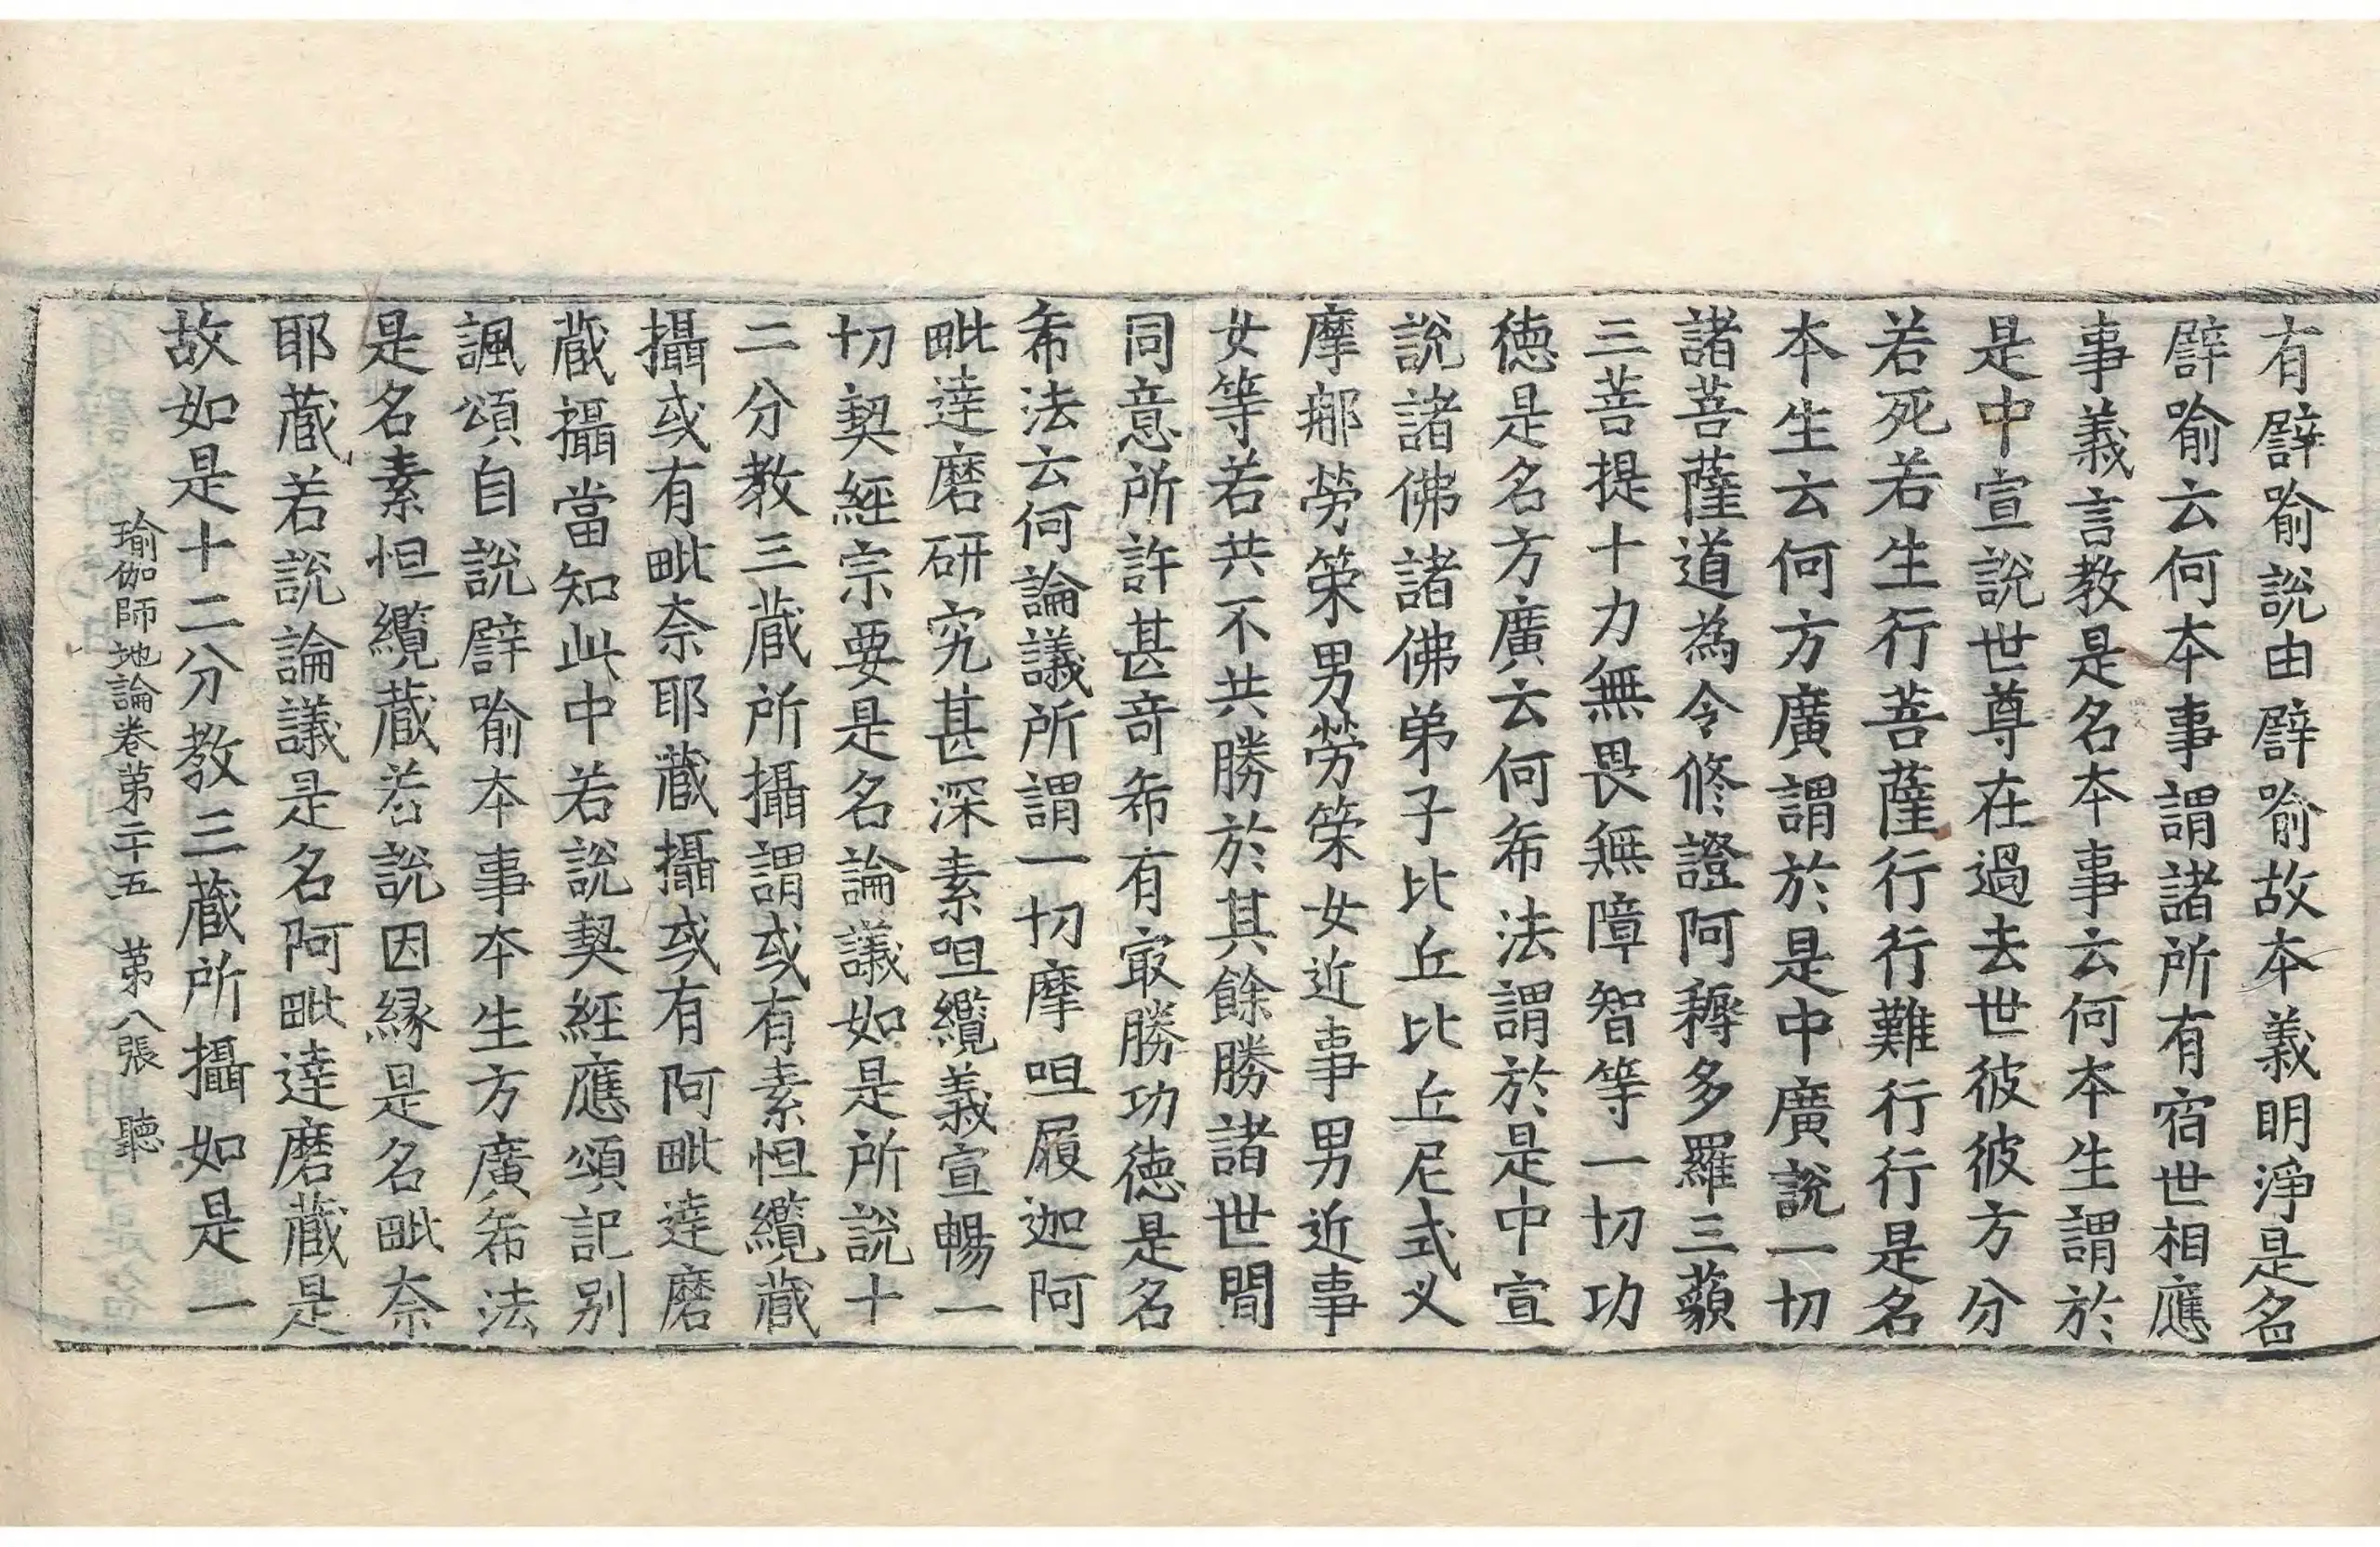 有譬喻說由譬喻故本義明淨是名
譬喻云何本事謂諸所有宿世相應
事義言教是名本事云何本生謂於
是中宣說世尊在過去世彼彼方分
若死若生行菩薩行行難行行是名
本生云何方廣謂於是中廣說一切
諸菩薩道為令修證阿耨多羅三藐
三菩提十力無畏無障智等一切功
德是名方廣云何希法謂於是中宣
說諸佛諸佛弟子比丘比丘尼式叉
摩那勞策男勞策女近事男近事
女等若共不共勝於其餘勝諸世間
同意所許甚奇希有㝡勝功德是名
希法云何論議所謂一切摩呾履迦阿
毗達磨研究甚深素呾纜義宣暢一
切契經宗要是名論議如是所說十
二分教三藏所攝謂或有素怛纜藏
攝或有毗奈耶藏攝或有阿毗達磨
藏攝當知此中若說契經應頌記別
諷頌自說譬喻本事本生方廣希法
是名素怛纜藏若說因緣是名毗奈
耶藏若說論議是名阿毗達磨藏是
故如是十二分教三藏所攝如是一
瑜伽師地論卷第二十五 第八張 聽